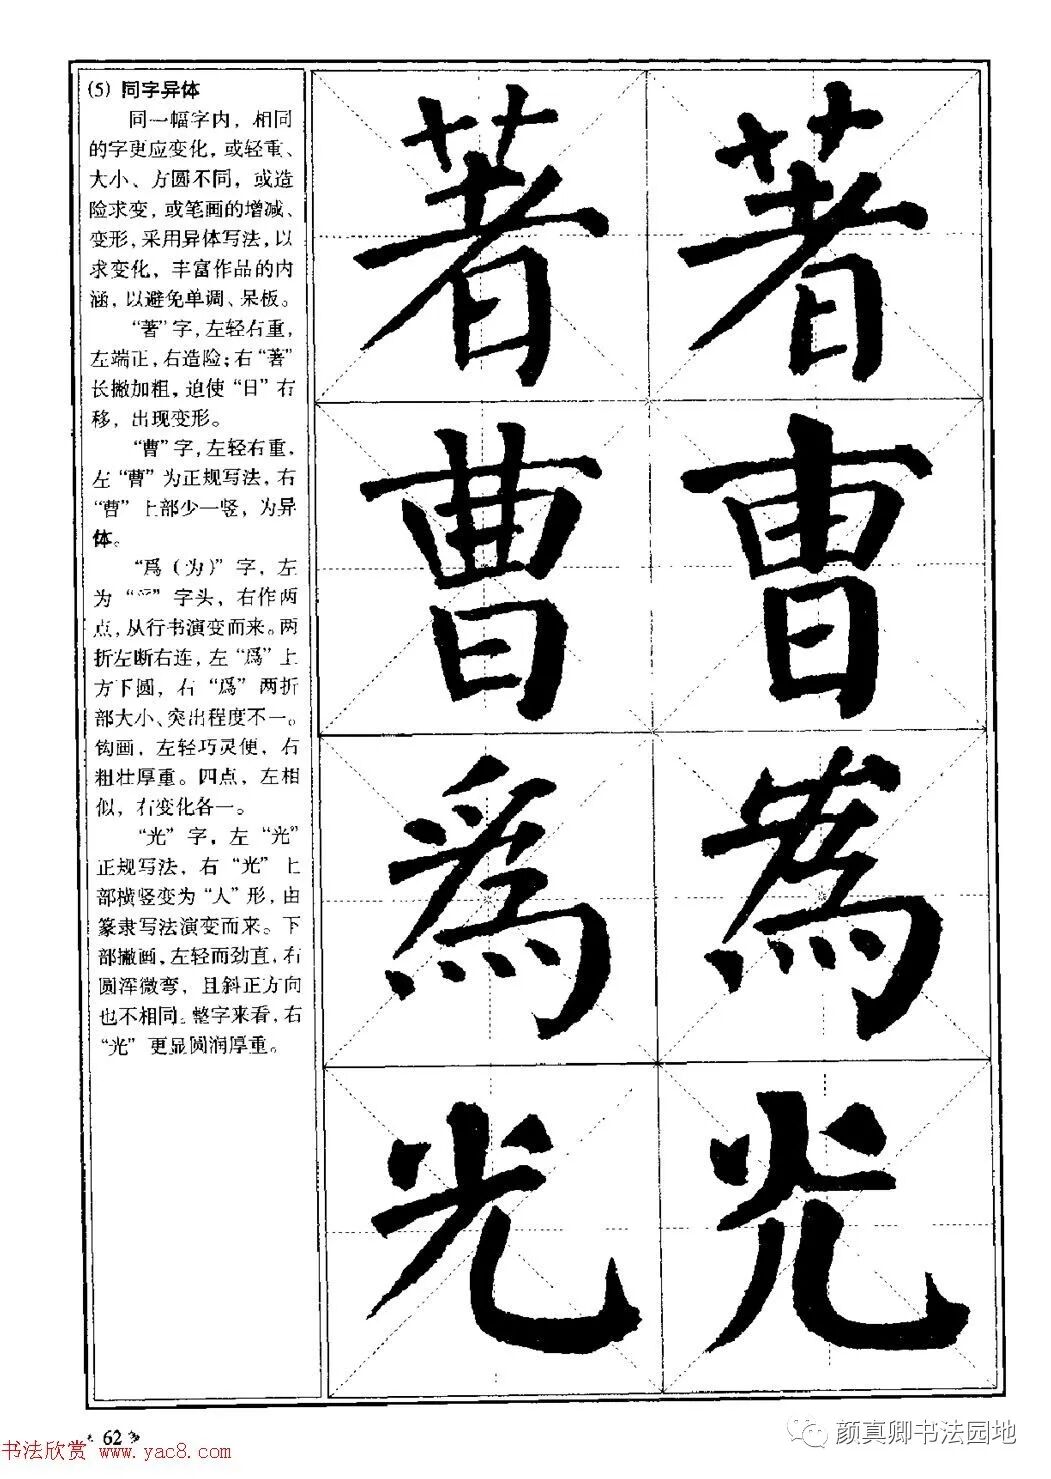 (5) 同字异体
同一幅字内，相同
的字更应变化，或轻重、
大小、方圆不同，或造
险求变，或笔画的增减、
变形，采用异体写法，以
求变化，丰富作品的内
涵，以避免单调、呆板。
“著”字，左轻右重，
左端正，右造险；右“著”
长撇加粗，迫使“日”右
移，出现变形。
“曹”字，左轻右重，
左“曹”为正规写法，右
“曹”上部少一竖，为异
体。
“爲(为)”字，左
为“爫”字头，右作两
点，从行书演变而来。两
折左断右连，左“爲”上
方下圆，右“爲”两折
部大小、突出程度不一。
钩画，左轻巧灵便，右
粗壮厚重。四点，左相
似，右变化各一。
“光”字，左“光”
正规写法，右“光”上
部横竖变为“人”形，由
篆隶写法演变而来。下
部撇画，左轻而劲直，右
圆浑微弯，且斜正方向
也不相同。整字来看，右
“光”更显圆润厚重。
著 著
曹 曺
爲 為
光 光
62
书法欣赏 www.yac8.com
颜真卿书法园地